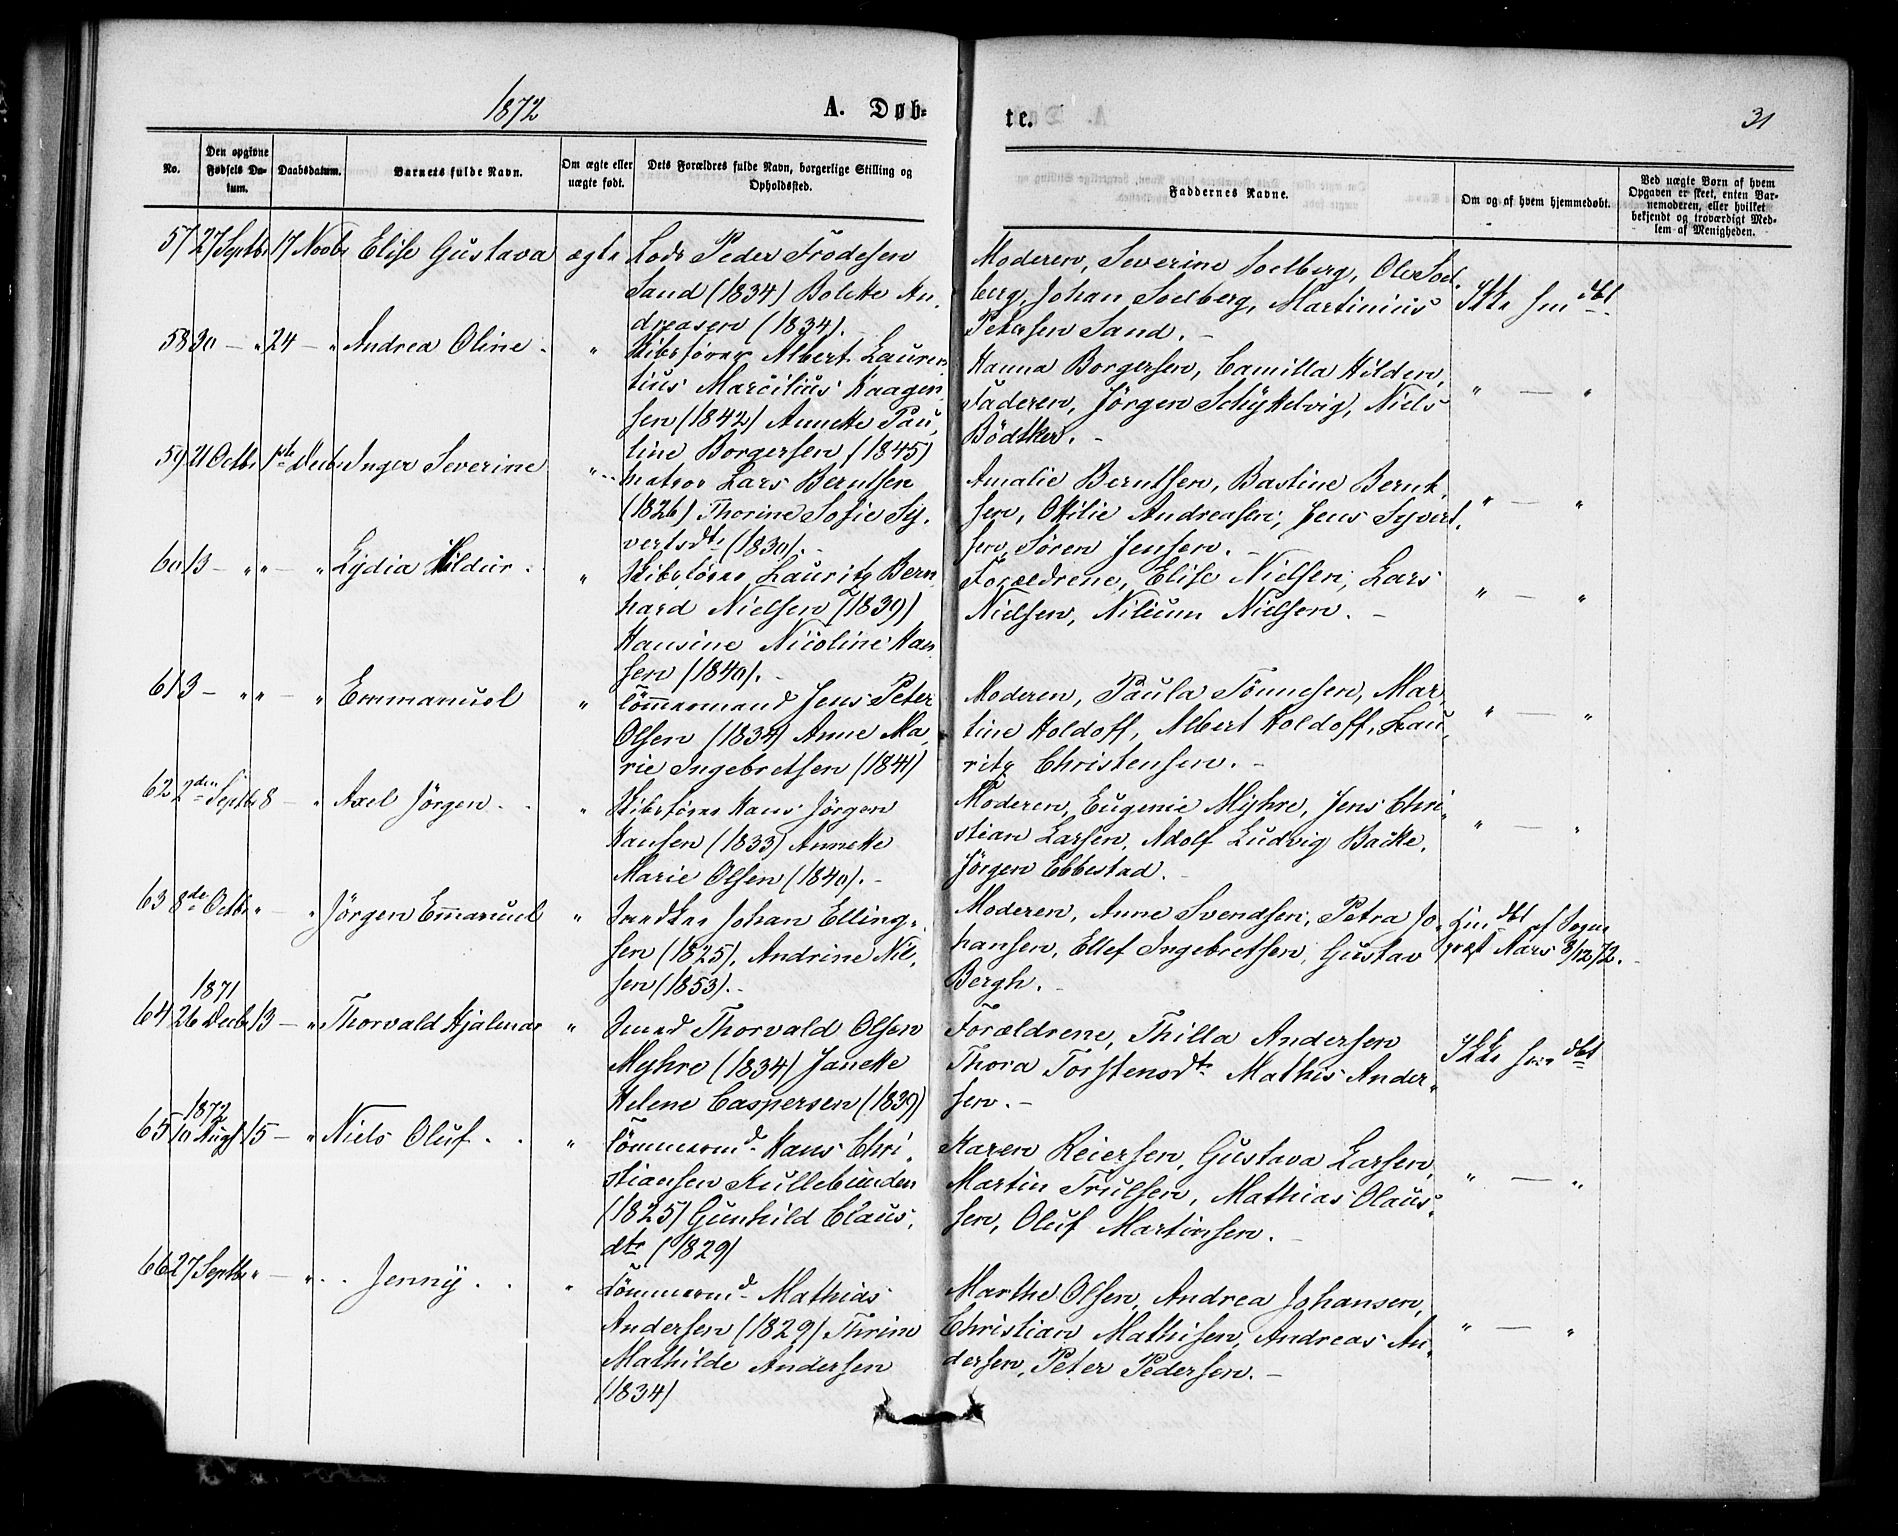 1872
A. Døb=
te.
31
No.
Den opgivne Fødsels Datum.
Daabsdatum.
Barnets fulde Navn.
Om ægte eller uægte født.
Dets Forældres fulde Navn, borgerlige Stilling og Opholdssted.
Faddernes Navne.
Om og af hvem hjemmedøbt.
Ved uægte Born af hvem Opgaven er skeet, enten Barnemoderen, eller hvilket bekjendt og troværdigt Medlem af Menigheden.
57 27 Septbr 17 Novbr Elise Gustava ægte Lods Peder Frodesen
Sand (1834) Bolette An-
dreasen (1834).
Moderen, Severine Soelberg, Ole Soel-
berg, Johan Soelberg, Martinius
Petersen Sand. –
Ikke hm dbt
58 30 – " 24 – " Andrea Oline. " Skibsfører Albert Lauren-
tius Marcilius Kaagen-
sen (1842) Annette Pau-
line Borgersen (1845)
Hanna Borgersen, Camilla Hilden,
Faderen, Jörgen Schythelvig, Niels
Bödtker. –
" – "
59 21 Octbr 1ste Decbr Inger Severine " Matros Lars Berntsen
(1826) Thorine Sofie Sy-
vertsdtr (1830). –
Amalie Berntsen, Bastine Bernt-
sen, Otilie Andreasen, Jens Syvert-
sen, Søren Jensen. –
" – "
60 13 – " " – " Lydia Hildur. " Skibsfører Lauritz Bern-
hard Nielsen (1839)
Hansine Nicoline Han-
sen (1840). –
Forældrene, Elise Nielsen, Lars
Nielsen, Nilium Nielsen. –
" – "
61 3 – " " – " Emmanuel " Tömmermand Jens Peter
Olsen (1834) Anne Ma-
rie Ingebretsen (1841)
Moderen, Paula Tönnesen, Mar-
tine Holdoff, Albert Holdoff, Lau-
ritz Christensen. –
" – "
62 2den Septbr 8 – " Axel Jörgen. " Skibsfører Hans Jörgen
Hansen (1833) Annette
Marie Olsen (1840). –
Moderen, Eugenie Myhre, Jens Chri-
stian Larsen, Adolf Ludvig Backe,
Jörgen Ebbestad. –
" – "
63 8de Octbr " – " Jörgen Emanuel " Johan Elling-
sen (1825), Andrine Niel-
sen (1853). –
Moderen, Anne Svendsen, Petra Jo-
hansen, Ellef Ingebretsen, Gustav
Bergh. –
dbt af Sogne-
præst 8/12 72. –
1871
64 26 Decbr 13 – " Thorvald Hjalmar " Smed Thorvald Olsen
Myhre (1834) Janette
Helene Caspersen (1839)
Forældrene, Thilla Andersen
Thora Torstensdtr Mathis Ander-
sen. –
Ikke hm dbt
1872
65 10 Augst 15 – " Niels Oluf. " Tömmermd Hans Chri-
stiansen Kullebunden
(1825) Gunhild Claus-
dtr (1829)
Karen Reiersen, Gustava Larsen,
Martin Trulsen, Mathias Olaus-
sen, Oluf Martinsen. –
" – "
66 27 Septbr " – " Jenny. " Tömmermd Mathias
Andersen (1829) Thrine
Mathilde Andersen
(1834)
Marthe Olsen, Andrea Johansen,
Christian Mathisen, Andreas An-
dersen, Peter Pedersen. –
" – "